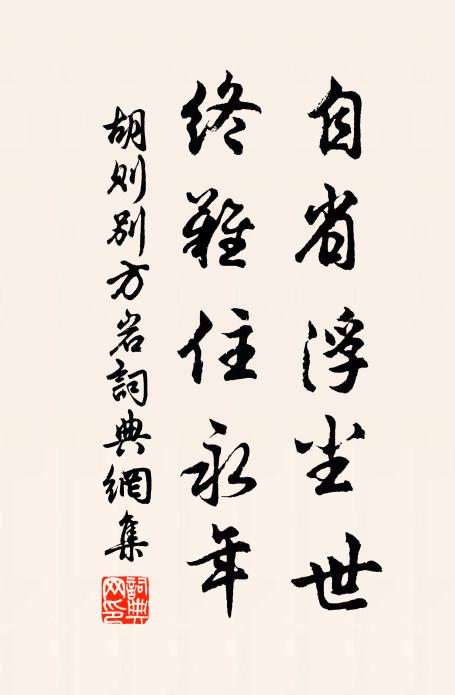 自省浮尘世
终難住永年
胡则别方岩詞典網集
詞典网印